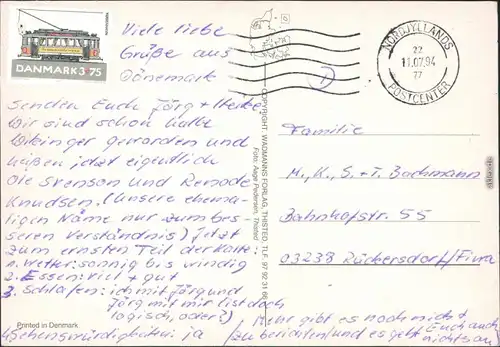 DANMARK 3.75
Viele liebe
Grüße aus
Dänemark
NORDJYLLANDS
22
11.07.94
77
POSTCENTER
Senden Euch Jörg + Heike
Wir sind schon halbe
Wikinger geworden und
heißen jetzt eigentlich
Ole Svenson und
Knudsen. (Unsere ehema-
ligen Name nur zum bes-
seren Verständnis) Jetzt
zum ernsten Teil der Karte:
1. Wetter: sonnig bis windig
2. Essen: viel + gut
3. Schlafen: ich mit Jörg und
Jörg mit mir (ist doch
logisch, oder?)
4. Sehenswürdigkeiten: ja
Mehr gibt es noch nicht
zu berichten (und es geht Euch auch
nichts an
COPYRIGHT: WADMANNS FORLAG, THISTED. TLF. 97 92 31 66
Foto: Aage Pedersen, Thisted
Familie
M., K., S. + T. Bachmann
Bahnhofstr. 55
03238 Rückersdorf/Finw.
Printed in Denmark